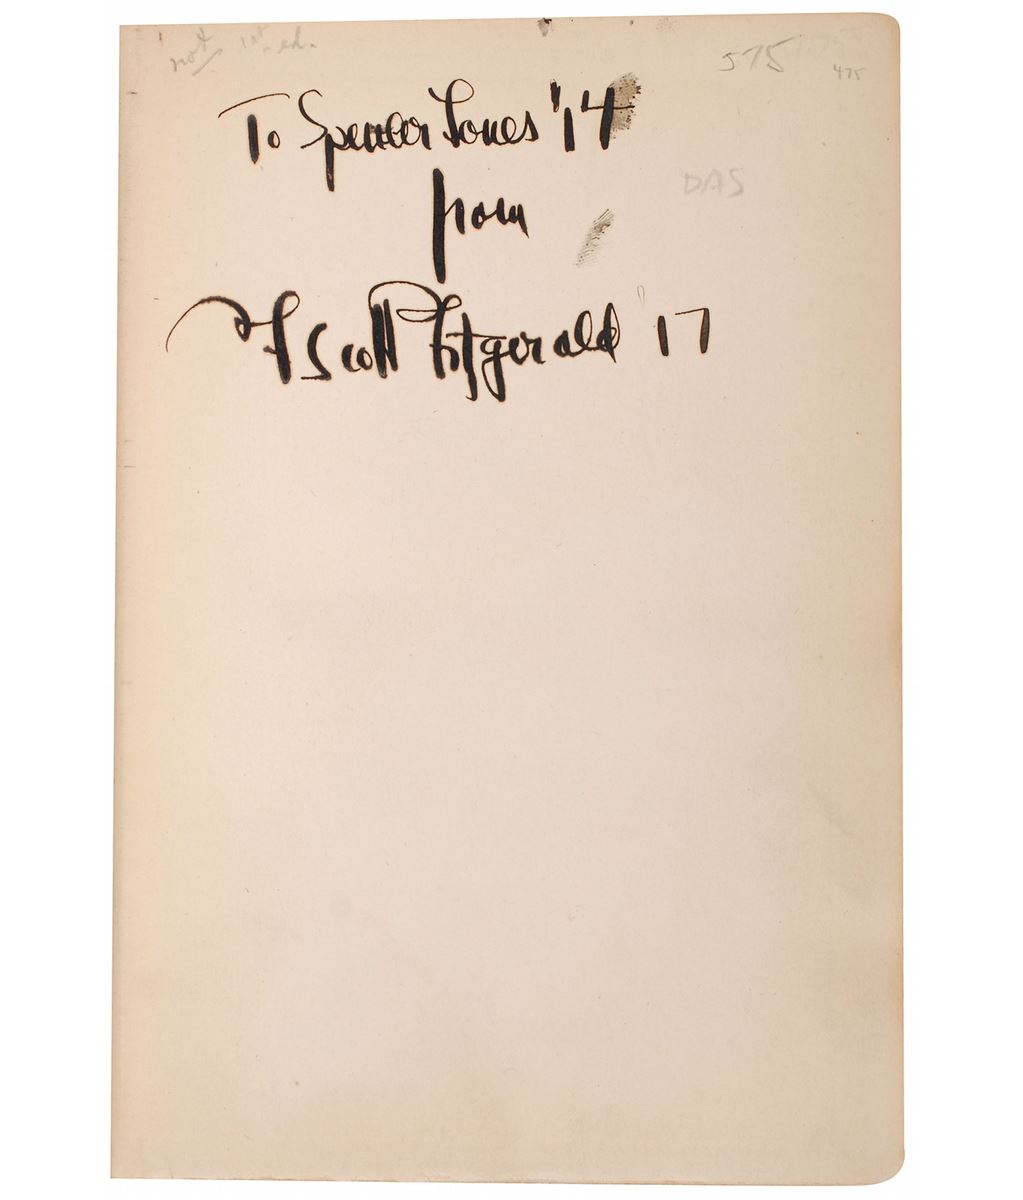 not 1st. ed.
575
475
To Spencer Jones '14
DAS
from
F Scott Fitzgerald '17